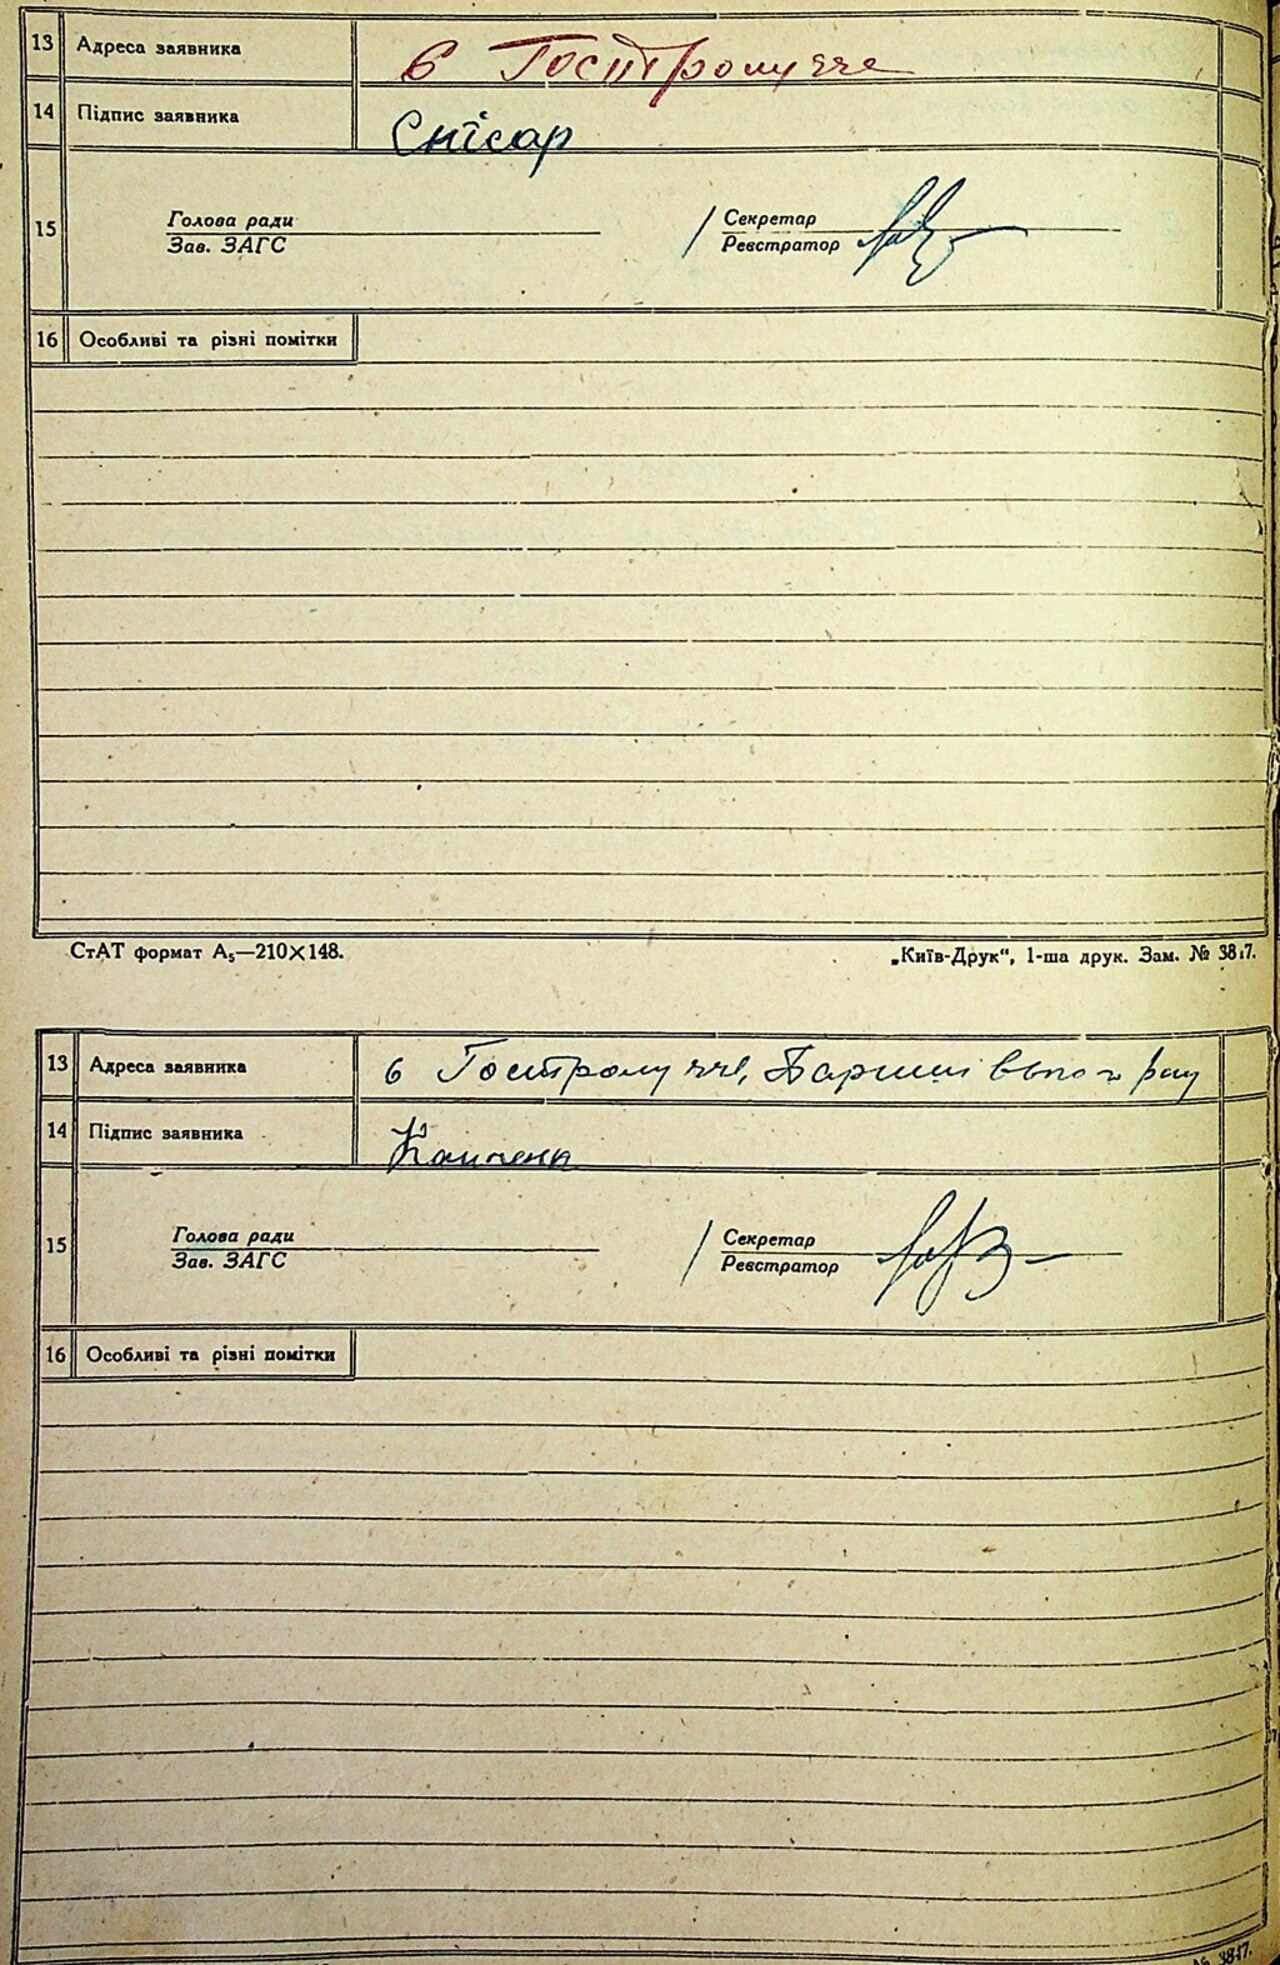 13 Адреса заявника с Гостролуччє
14 Підпис заявника Снісар
15 Голова ради Секретар
Зав. ЗАГС Реєстратор
16 Особливі та різні помітки
СтАТ формат А₅—210×148. „Київ-Друк“, 1-ша друк. Зам. № 3817.
13 Адреса заявника с Гостролуччє, Баришівського р-ну
14 Підпис заявника
15 Голова ради Секретар
Зав. ЗАГС Реєстратор
16 Особливі та різні помітки
№ 3817.